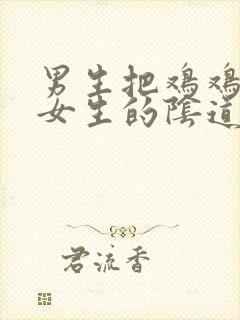 男生把鸡鸡
女生的陰道
君流香